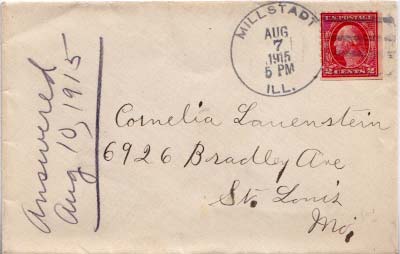 Answered
Aug 10, 1915
MILLSTADT
AUG
7
1915
5 PM
ILL.
U.S. POSTAGE
2 CENTS 2
Cornelia Lauenstein
6926 Bradley Ave
St. Louis
Mo.